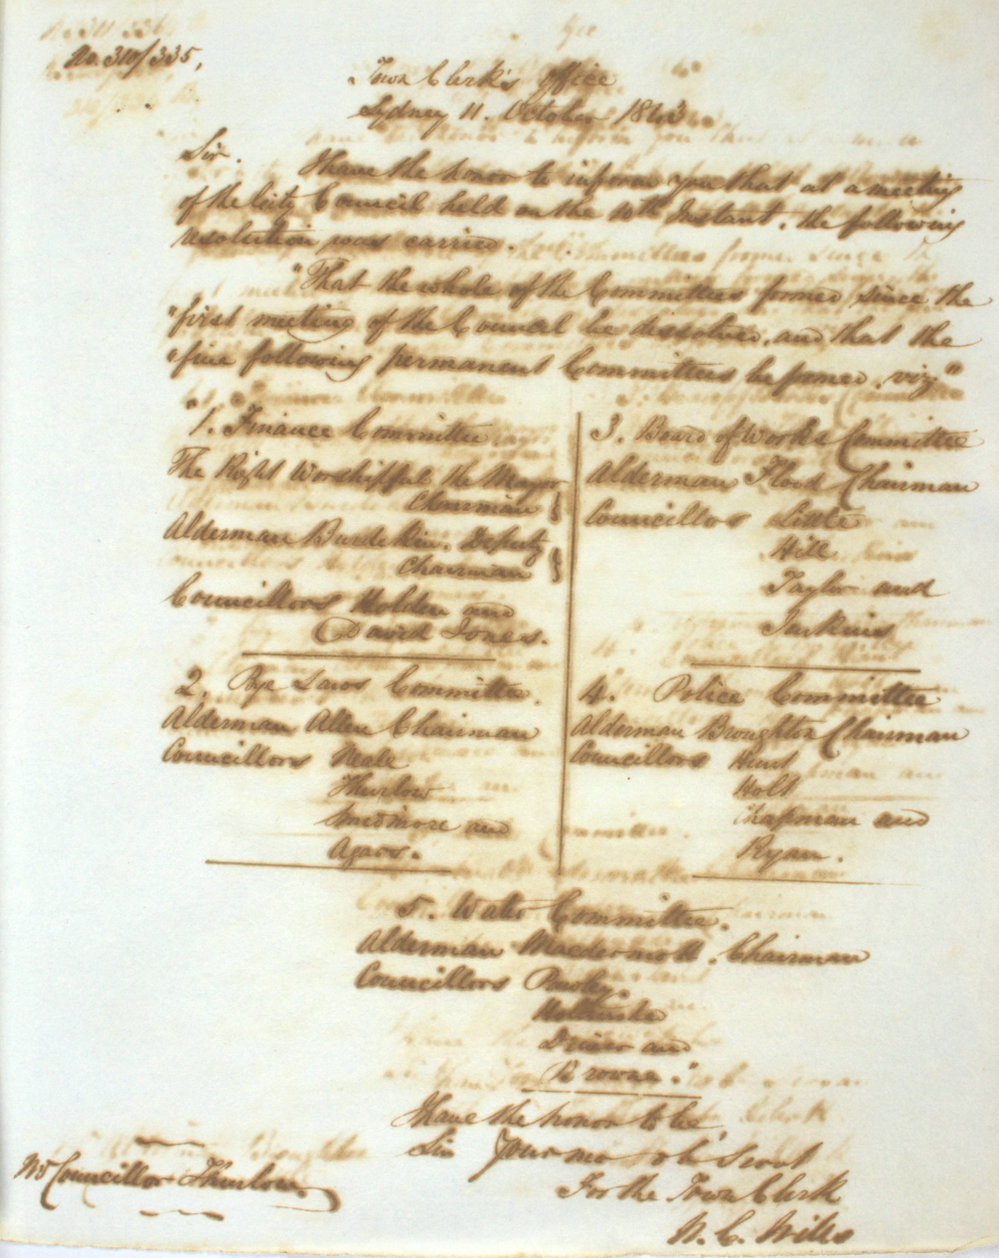 No. 310/335,
Town Clerk's Office
Sydney 11. October 1843
Sir.
I have the honor to inform you that at a meeting
of the City Council held on the 10th Instant, the following
resolution was carried.
"That the whole of the Committees formed since the
"first meeting of the Council be dissolved, and that the
"five following permanent Committees be formed, viz"
"1. Finance Committee
The Right Worshipful the Mayor
Chairman }
Alderman Burdekin. Deputy
Chairman }
Councillors Holden and
David Jones.
2. Bye Laws Committee.
Alderman Allen Chairman
Councillors Neale
Thurlow
Smidmore and
Agars.
3. Board of Works Committee
Alderman Flood Chairman
Councillors Little
Hill
Taylor and
Jenkins
4. Police Committee
Alderman Broughton Chairman
Councillors Hunt
Holt
Chapman and
Ryan.
5. Water Committee.
Alderman Macdermott. Chairman
Councillors
Driver and
Browne."
I have the honor to be
Sir Your mo ob Servt
For the Town Clerk
W. C. Wills
Mr Councillor Thurlow